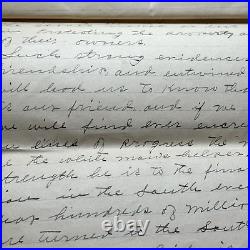 protecting the property a
of their owners.
Such strong evidence
friendship and entwined
will lead us to know tha
is our friend and if we
we will find ever encro
lines of progress the n
the white man's helper
strength he is to the fina
in the South en
hundreds of millio
turned in the Sout